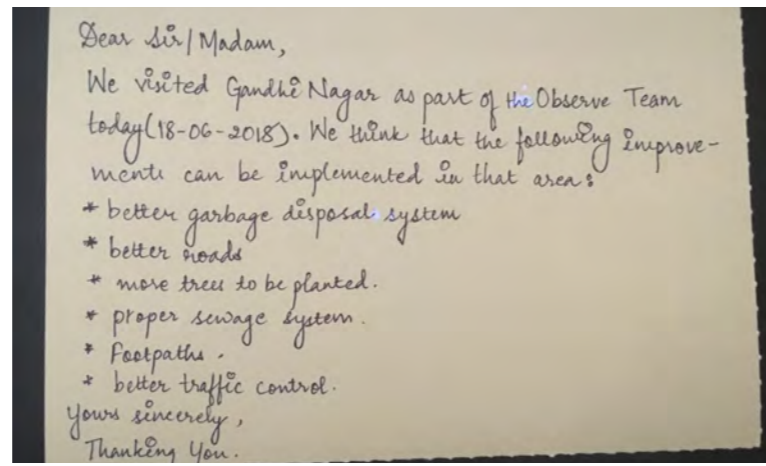 Dear Sir/Madam,
We visited Gandhi Nagar as part of the Observe Team
today(18-06-2018). We think that the following improve-
ments can be implemented in that area:
* better garbage disposal system
* better roads
* more trees to be planted.
* proper sewage system.
* Footpaths.
* better traffic control.
Yours sincerely,
Thanking You.